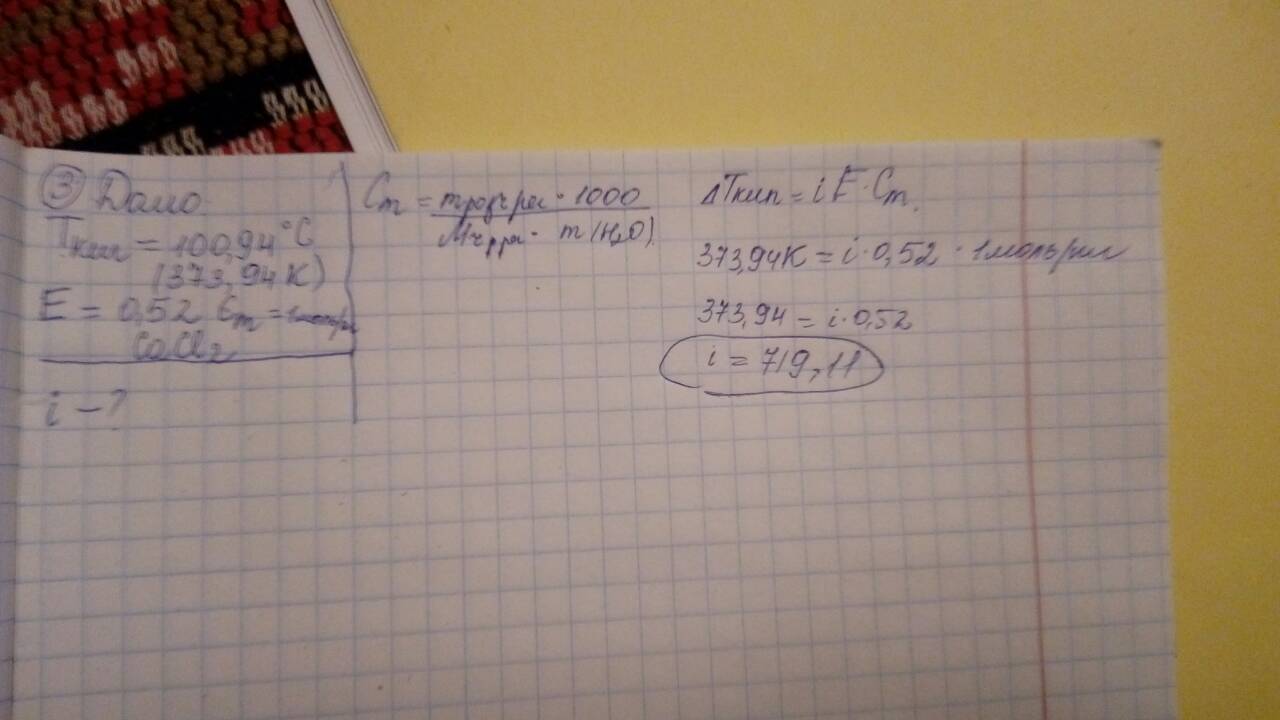 ③ Дано
Tкип = 100,94 °C
(373,94 K)
E = 0,52 Cm = 1моль/
CaCl₂
i – ?
Cm = m раств · 1000
M · m (H₂O).
ΔTкип = i E · Cm.
373,94K = i · 0,52 · 1моль/
373,94 = i · 0,52
i = 719,11